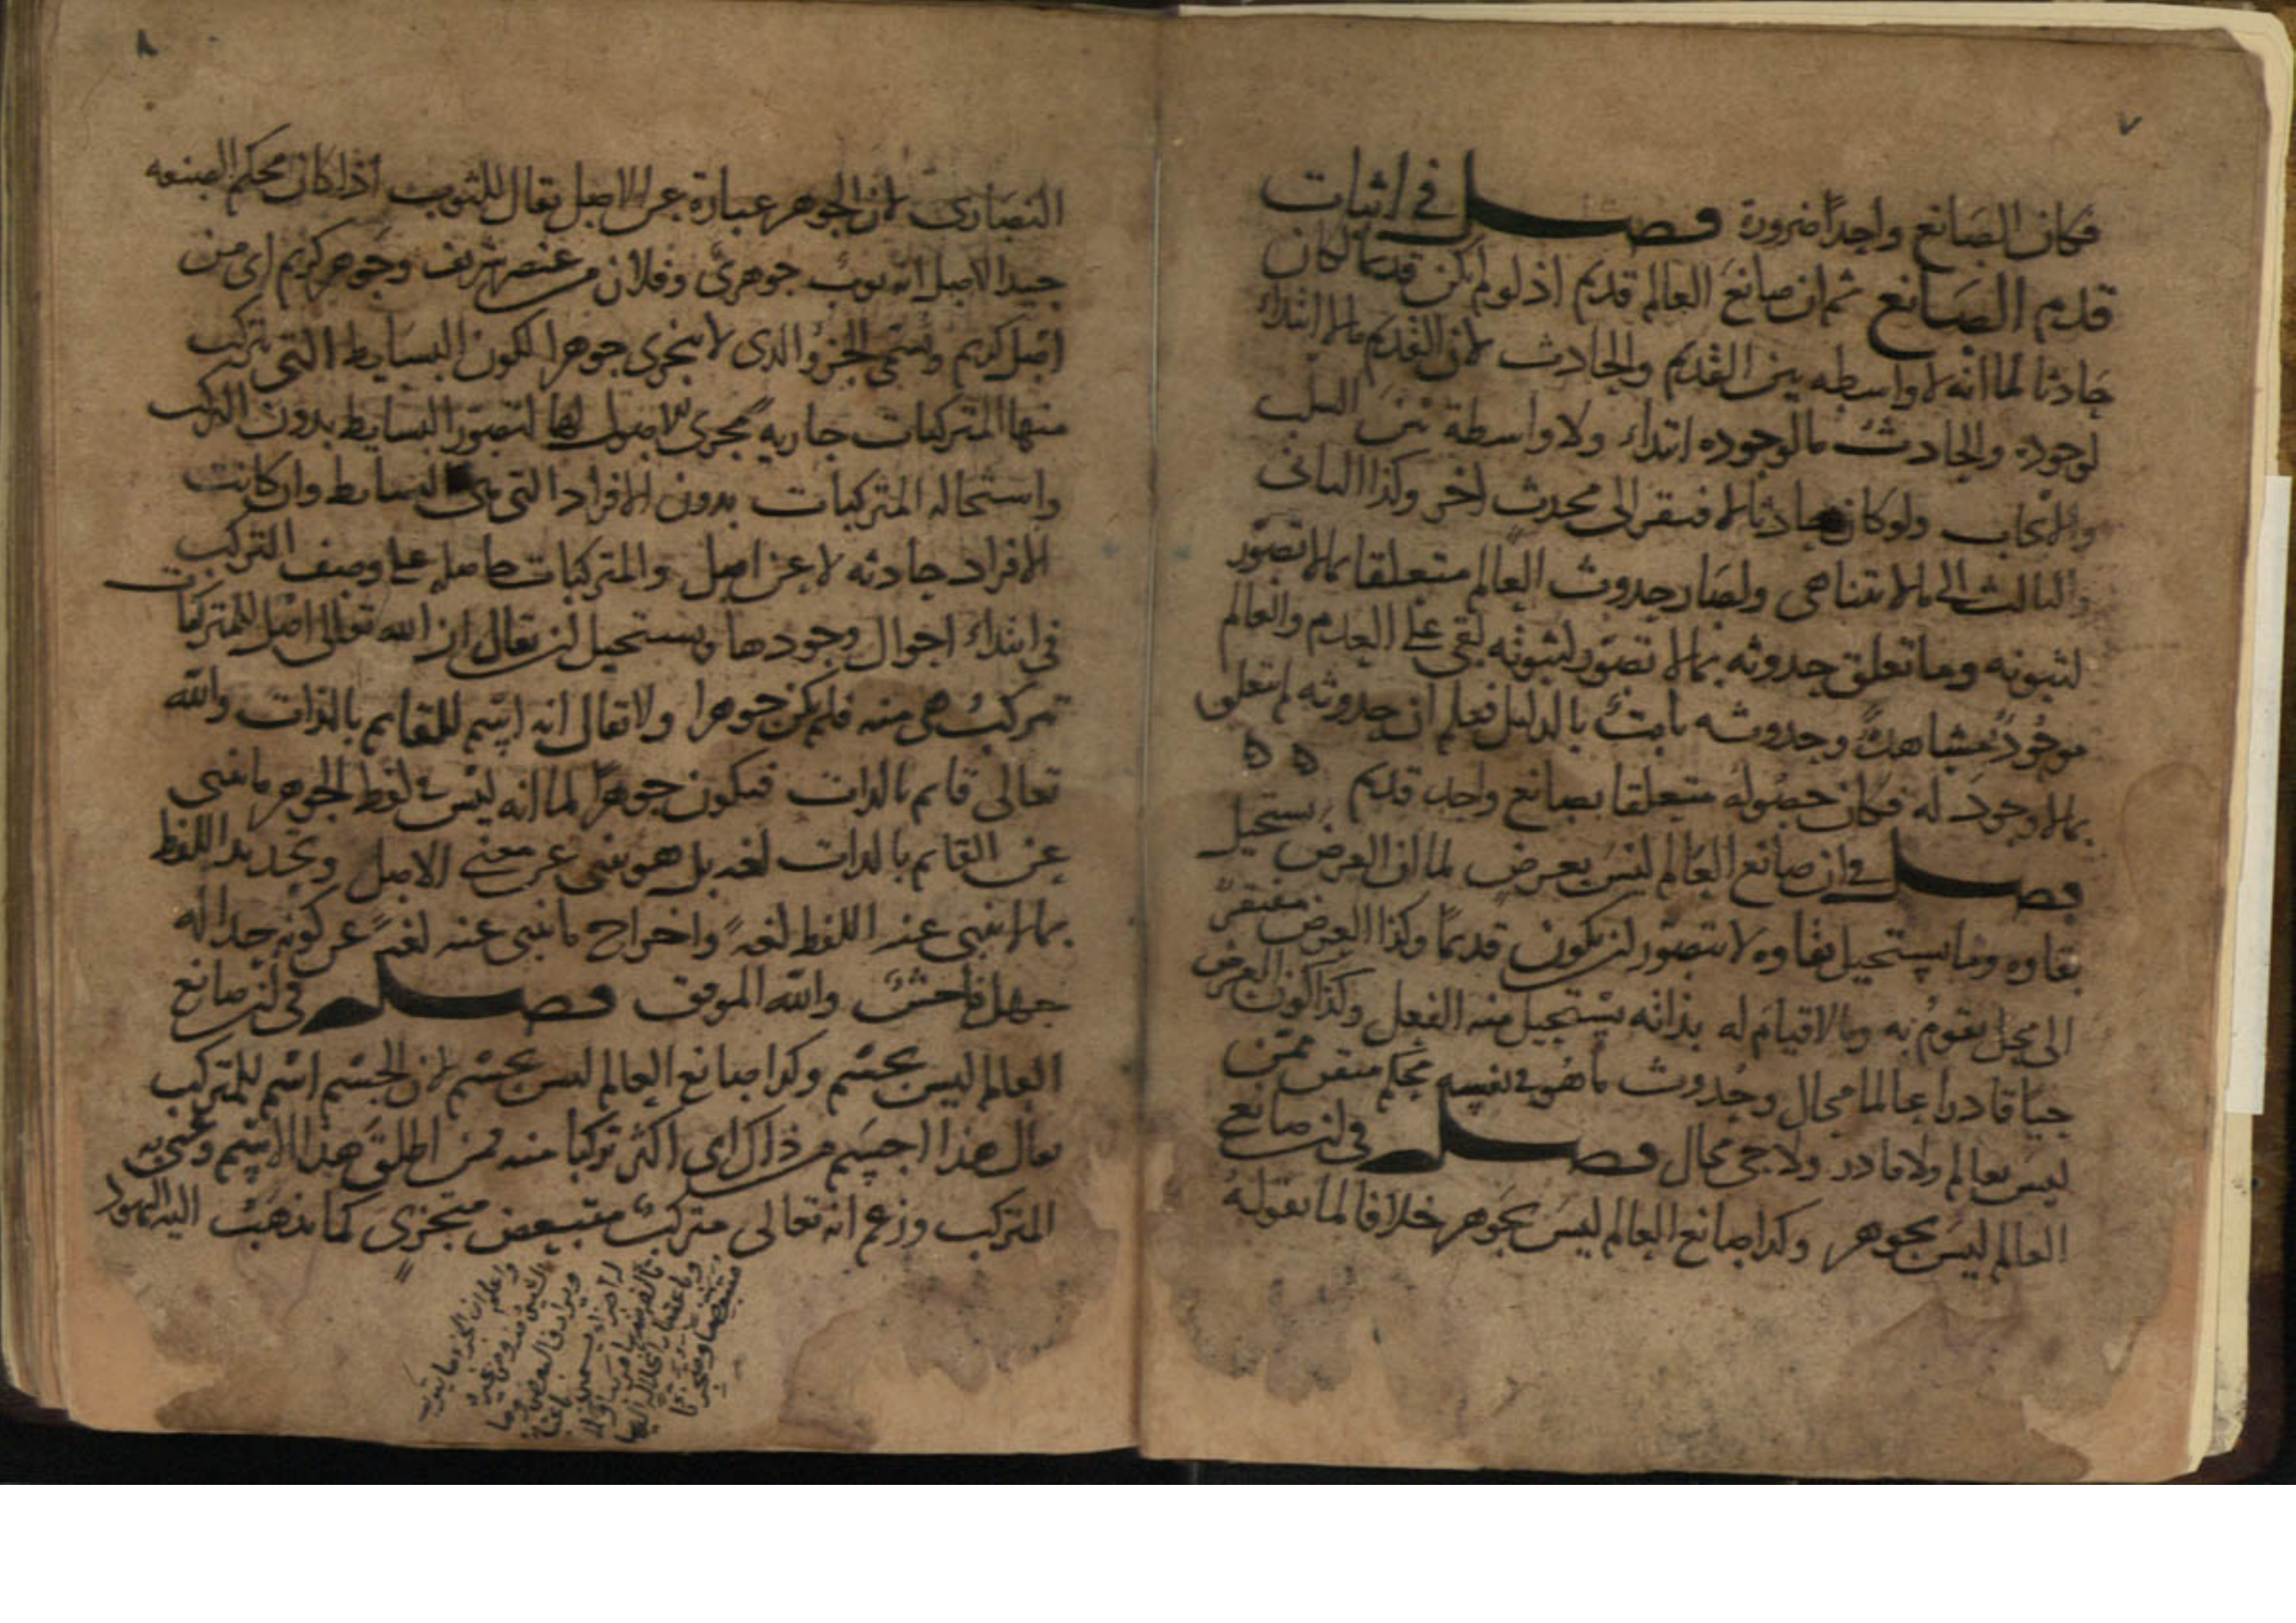 ٧
فكان الصانع واحدا ضرورة فصل في اثبات
قدم الصانع ثم ان صانع العالم قديم اذ لو لم يكن قديما لكان
حادثا لما انه لا واسطه بين القديم والحادث لان القديم ما لا ابتداء
لوجوده والحادث ما لوجوده ابتداء ولا واسطة بين السلب
والايجاب ولو كان حادثا لافتقر الى محدث اخر وكذا الثاني
والثالث الى ما لا يتناهى ولصار حدوث العالم متعلقا بما لا تصور
لثبوته وما تعلق حدوثه بما لا تصور لثبوته بقي على العدم والعالم
موجود مشاهد وحدوثه ثابت بالدليل فعلم ان حدوثه لم يتعلق
بما لا وجود له فكان حصوله متعلقا بصانع واحد قديم
فصل في ان صانع العالم ليس بعرض لما ان العرض يستحيل
بقاوه وما يستحيل بقاوه لا يتصور ان يكون قديما وكذا العرض مفتقر
الى محل يقوم به وما لا قيام له بذاته يستحيل منه الفعل وكذا كون العرض
حيا قادرا عالما محال وحدوث ما هو في نفسه محكم متقن ممن
ليس بعالم ولا قادر ولا حي محال فصل في ان صانع
العالم ليس بجوهر وكذا صانع العالم ليس بجوهر خلافا لما يقوله
٨
النصارى لان الجوهر عبارة عن الاصل يقال للثوب اذا كان محكم الصنعه
جيد الاصل انه ثوب جوهري وفلان من عنصر شريف وجوهر كريم اي من
اصل كريم وسمي الجزؤ الذي لا يتجزى جوهرا لكون البسايط التي تتركب
منها المتركبات جاريه مجرى الاصول لها لتصور البسايط بدون التركب
واستحاله المتركبات بدون الافراد التي هي البسايط وان كانت
الافراد حادثه لا عن اصل والمتركبات حاصله على وصف التركب
في ابتداء احوال وجودها ويستحيل ان يقال ان الله تعالى اصل للمتركبات
تتركب هي منه فلم يكن جوهرا ولا يقال انه اسم للقايم بالذات والله
تعالى قايم بالذات فيكون جوهرا لما انه ليس في لفظ الجوهر ما ينبي
عن القايم بالذات لغه بل هو ينبي عن معنى الاصل وتحديد اللفظ
بما لا ينبي عنه اللفظ لغة واخراج ما ينبي عنه لغة عن كونه حدا له
جهل فاحش والله الموفق فصل في ان صانع
العالم ليس بجسم وكذا صانع العالم ليس بجسم لان الجسم اسم للمتركب
يقال هذا اجسم من ذاك اي اكثر تركبا منه فمن اطلق هذا الاسم وعنى به
المتركب وزعم انه تعالى متركب متبعض متجزي كما يذهب اليه اليهود
واعلم ان الجزء ما يتركب